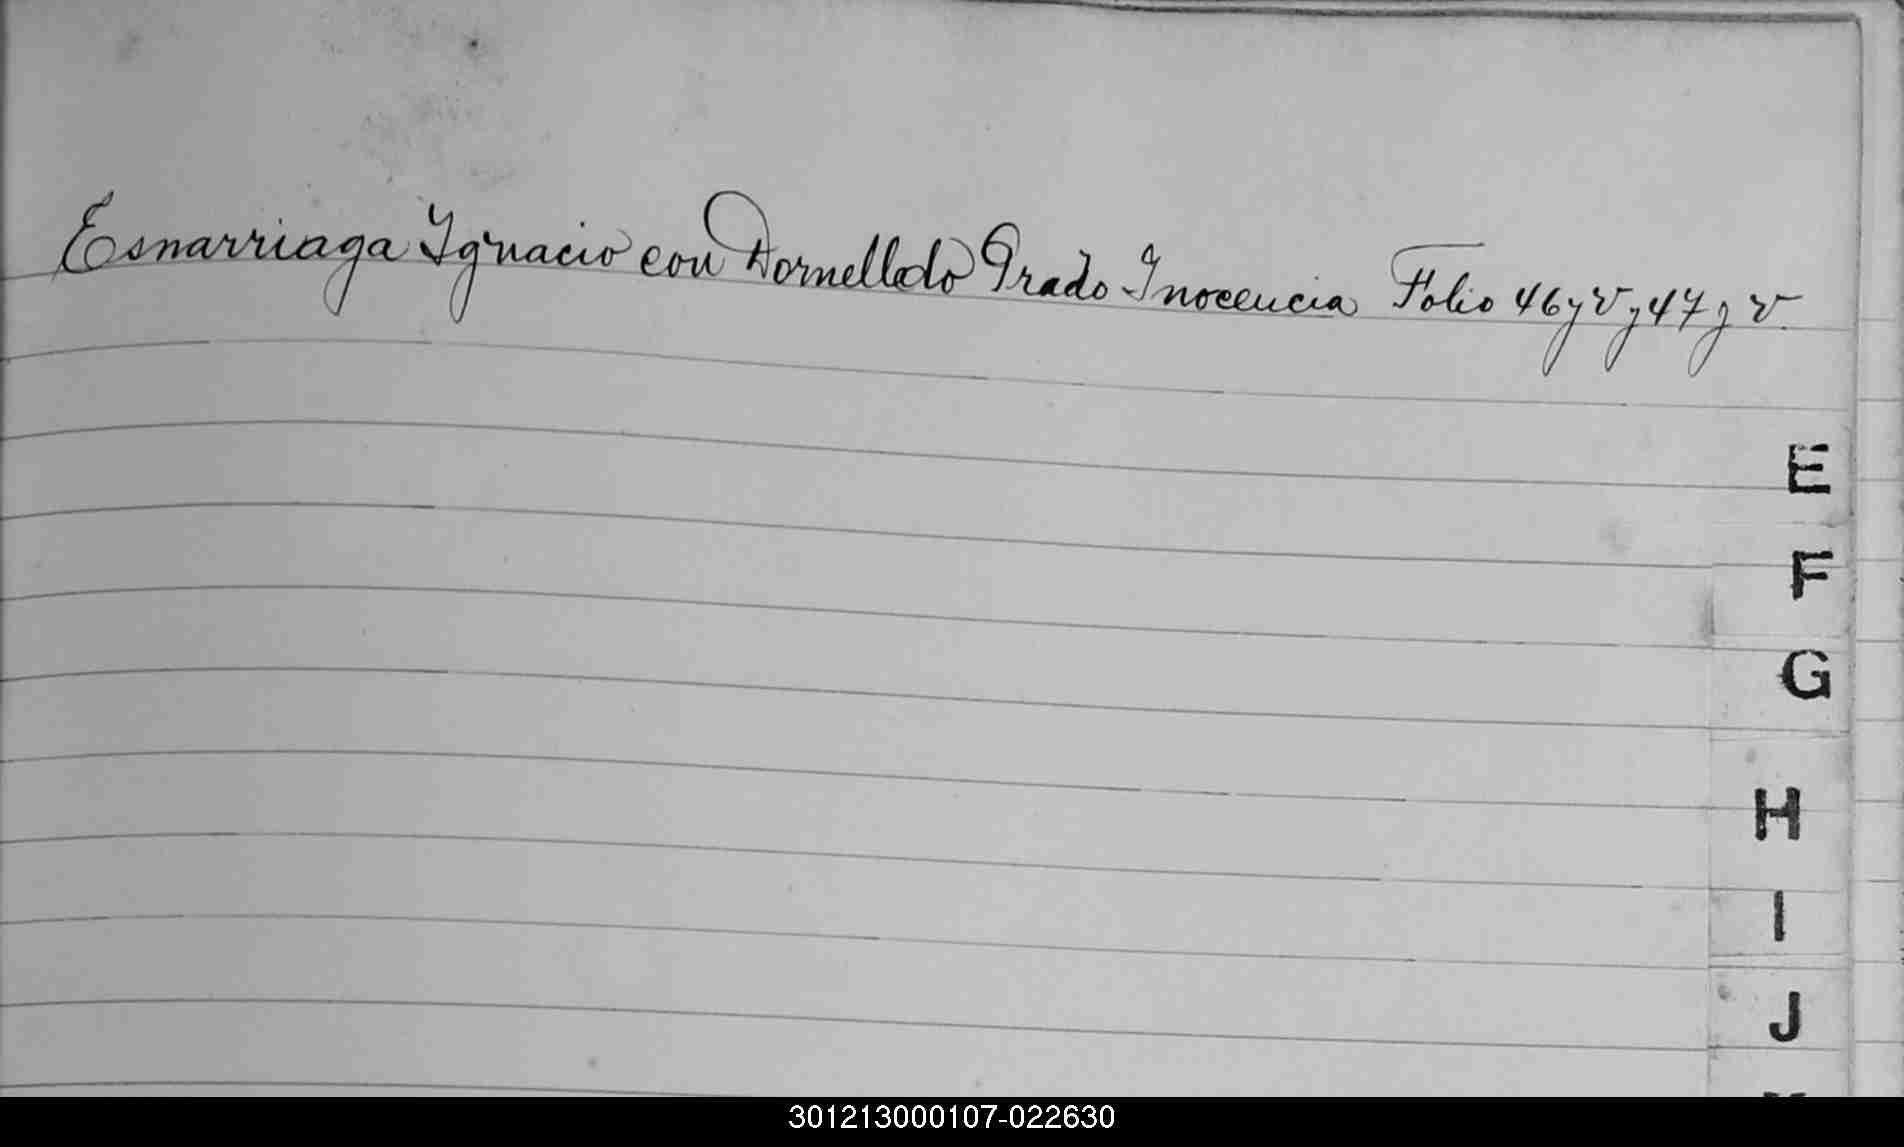 Esnarriaga Ygnacio con Dornelledo Prado Inocencia Folio 46 y v y 47 y v.
E
F
G
H
I
J
301213000107-022630